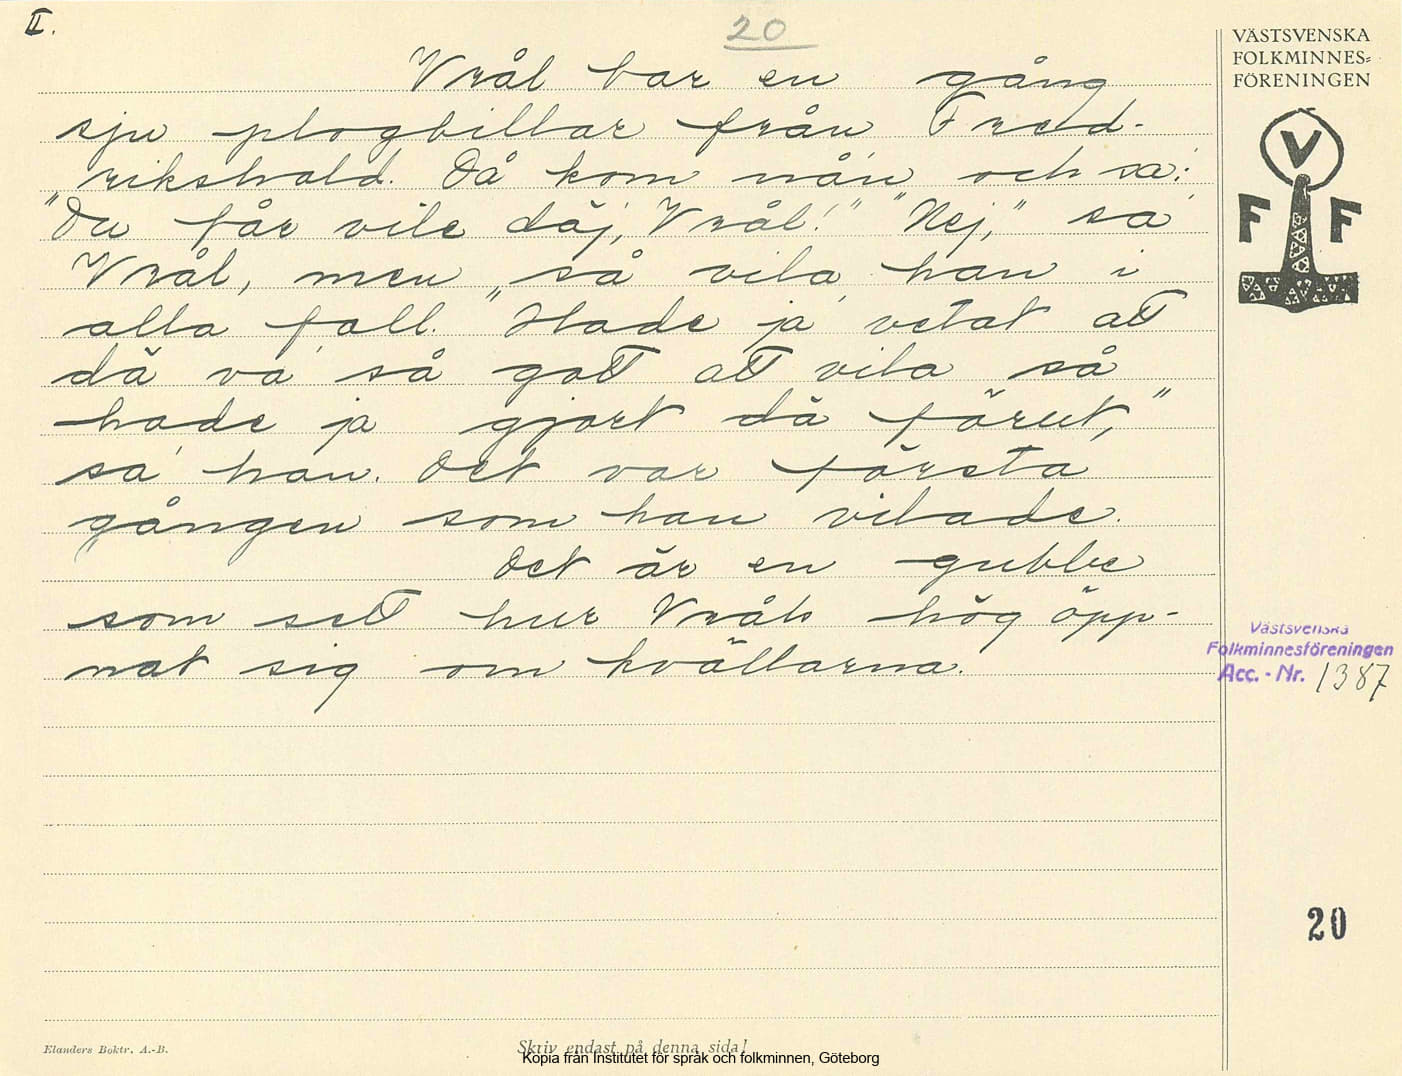 II.
20
VÄSTSVENSKA
FOLKMINNES=
FÖRENINGEN
V
F F
Vrål bar en gång
sju plogbillar från Fred-
rikshald. Då kom nån och sa':
"Du får vile däj, Vrål!" "Nej," sa'
Vrål, men så vila' han i
alla fall. "Hade ja' vetat att
dä va' så gott att vila så
hade ja gjort dä förut,"
sa' han. Det var första
gången som han vilade.
Det är en gubbe
som sett hur Vråls hög öpp-
nat sig om kvällarna.
Västsvenska
Folkminnesföreningen
Acc. - Nr. 1387
20
Elanders Boktr. A.-B.
Skriv endast på denna sida!
Kopia från Institutet för språk och folkminnen, Göteborg